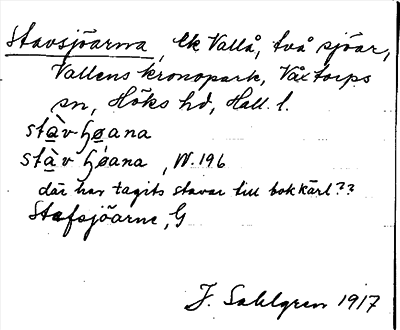 Stavsjöarna, ek Vallå, två sjöar,
Vallens kronopark, Våxtorps
sn, Höks hd, Hall. l.
stàvʃøana
stàv ʃøana, W. 196
där har tagits stavar till bokkärl??
Stafsjöarne, G
J. Sahlgren 1917